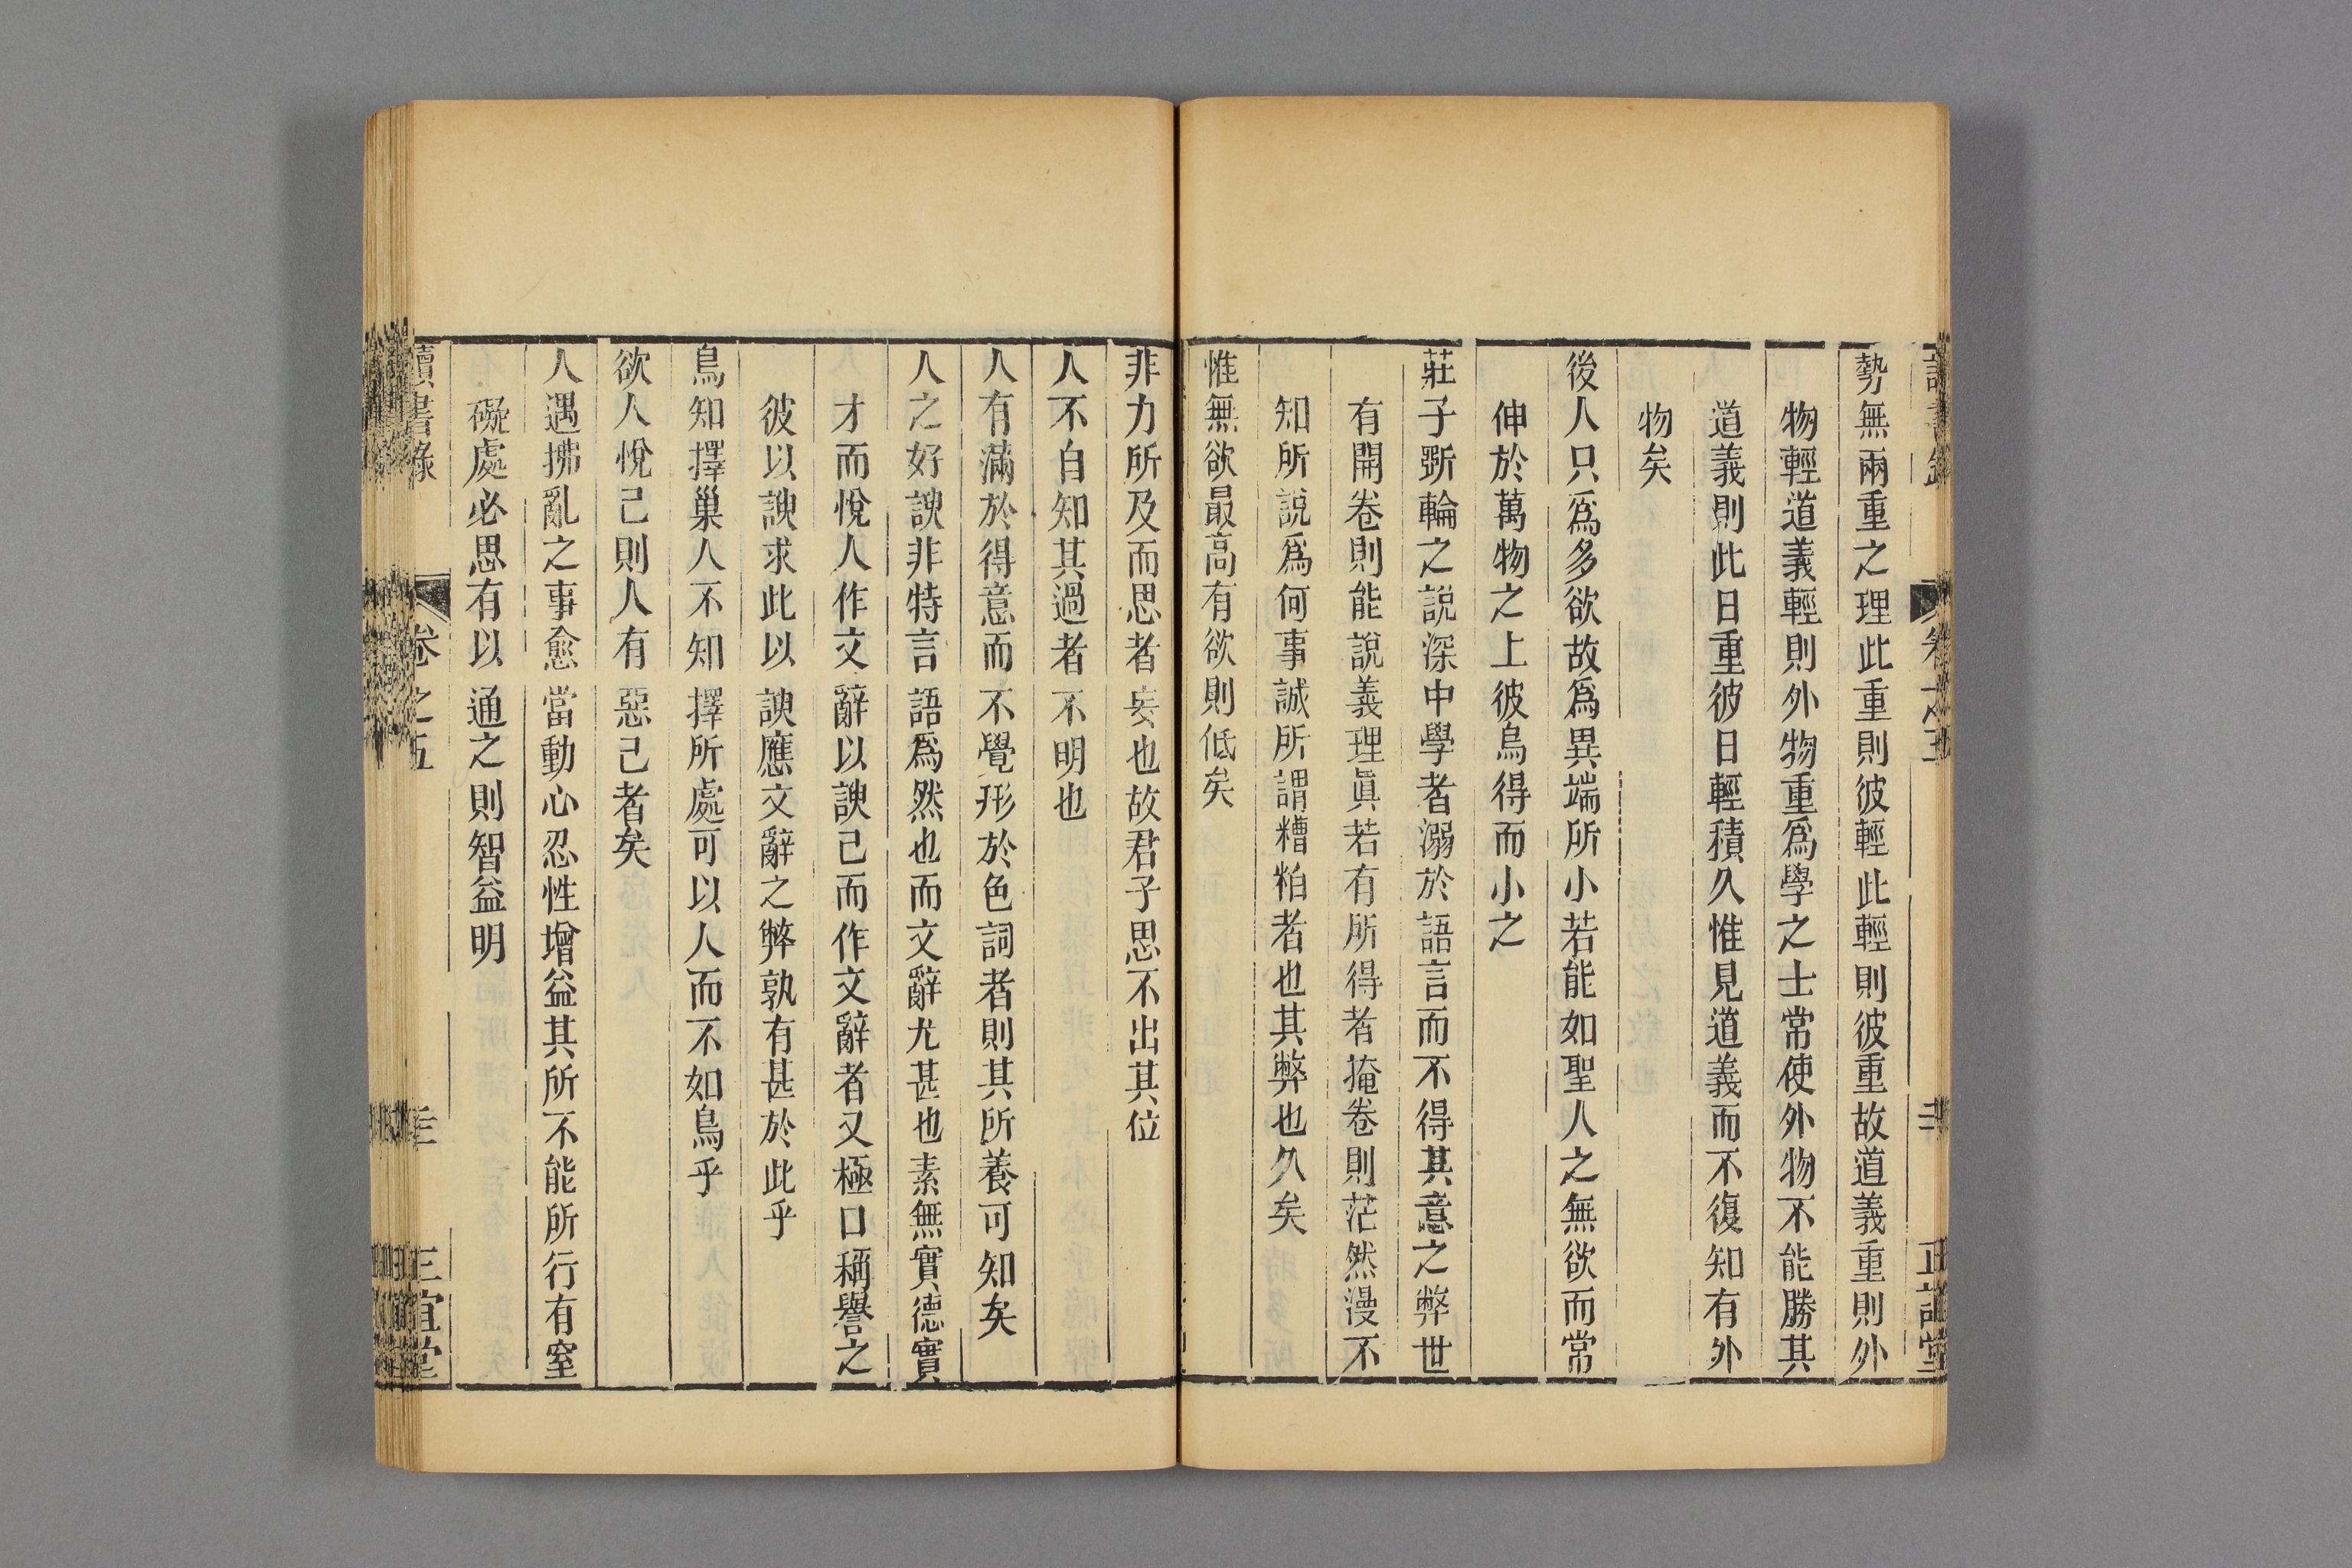 勢無兩重之理此重則彼輕此輕則彼重故道義重則外
物輕道義輕則外物重爲學之士常使外物不能勝其
道義則此日重彼日輕積久惟見道義而不復知有外
物矣
後人只爲多欲故爲異端所小若能如聖人之無欲而常
伸於萬物之上彼烏得而小之
莊子斲輪之說深中學者溺於語言而不得其意之弊世
有開卷則能說義理眞若有所得者掩卷則茫然漫不
知所說爲何事誠所謂糟粕者也其弊也久矣
惟無欲最高有欲則低矣
非力所及而思者妄也故君子思不出其位
人不自知其過者不明也
人有滿於得意而不覺形於色詞者則其所養可知矣
人之好諛非特言語爲然也而文辭尤甚也素無實德實
才而悅人作文辭以諛己而作文辭者又極口稱譽之
彼以諛求此以諛應文辭之弊孰有甚於此乎
鳥知擇巢人不知擇所處可以人而不如鳥乎
欲人悅己則人有惡己者矣
人遇拂亂之事愈當動心忍性增益其所不能所行有窒
礙處必思有以通之則智益明
讀書錄
卷之五